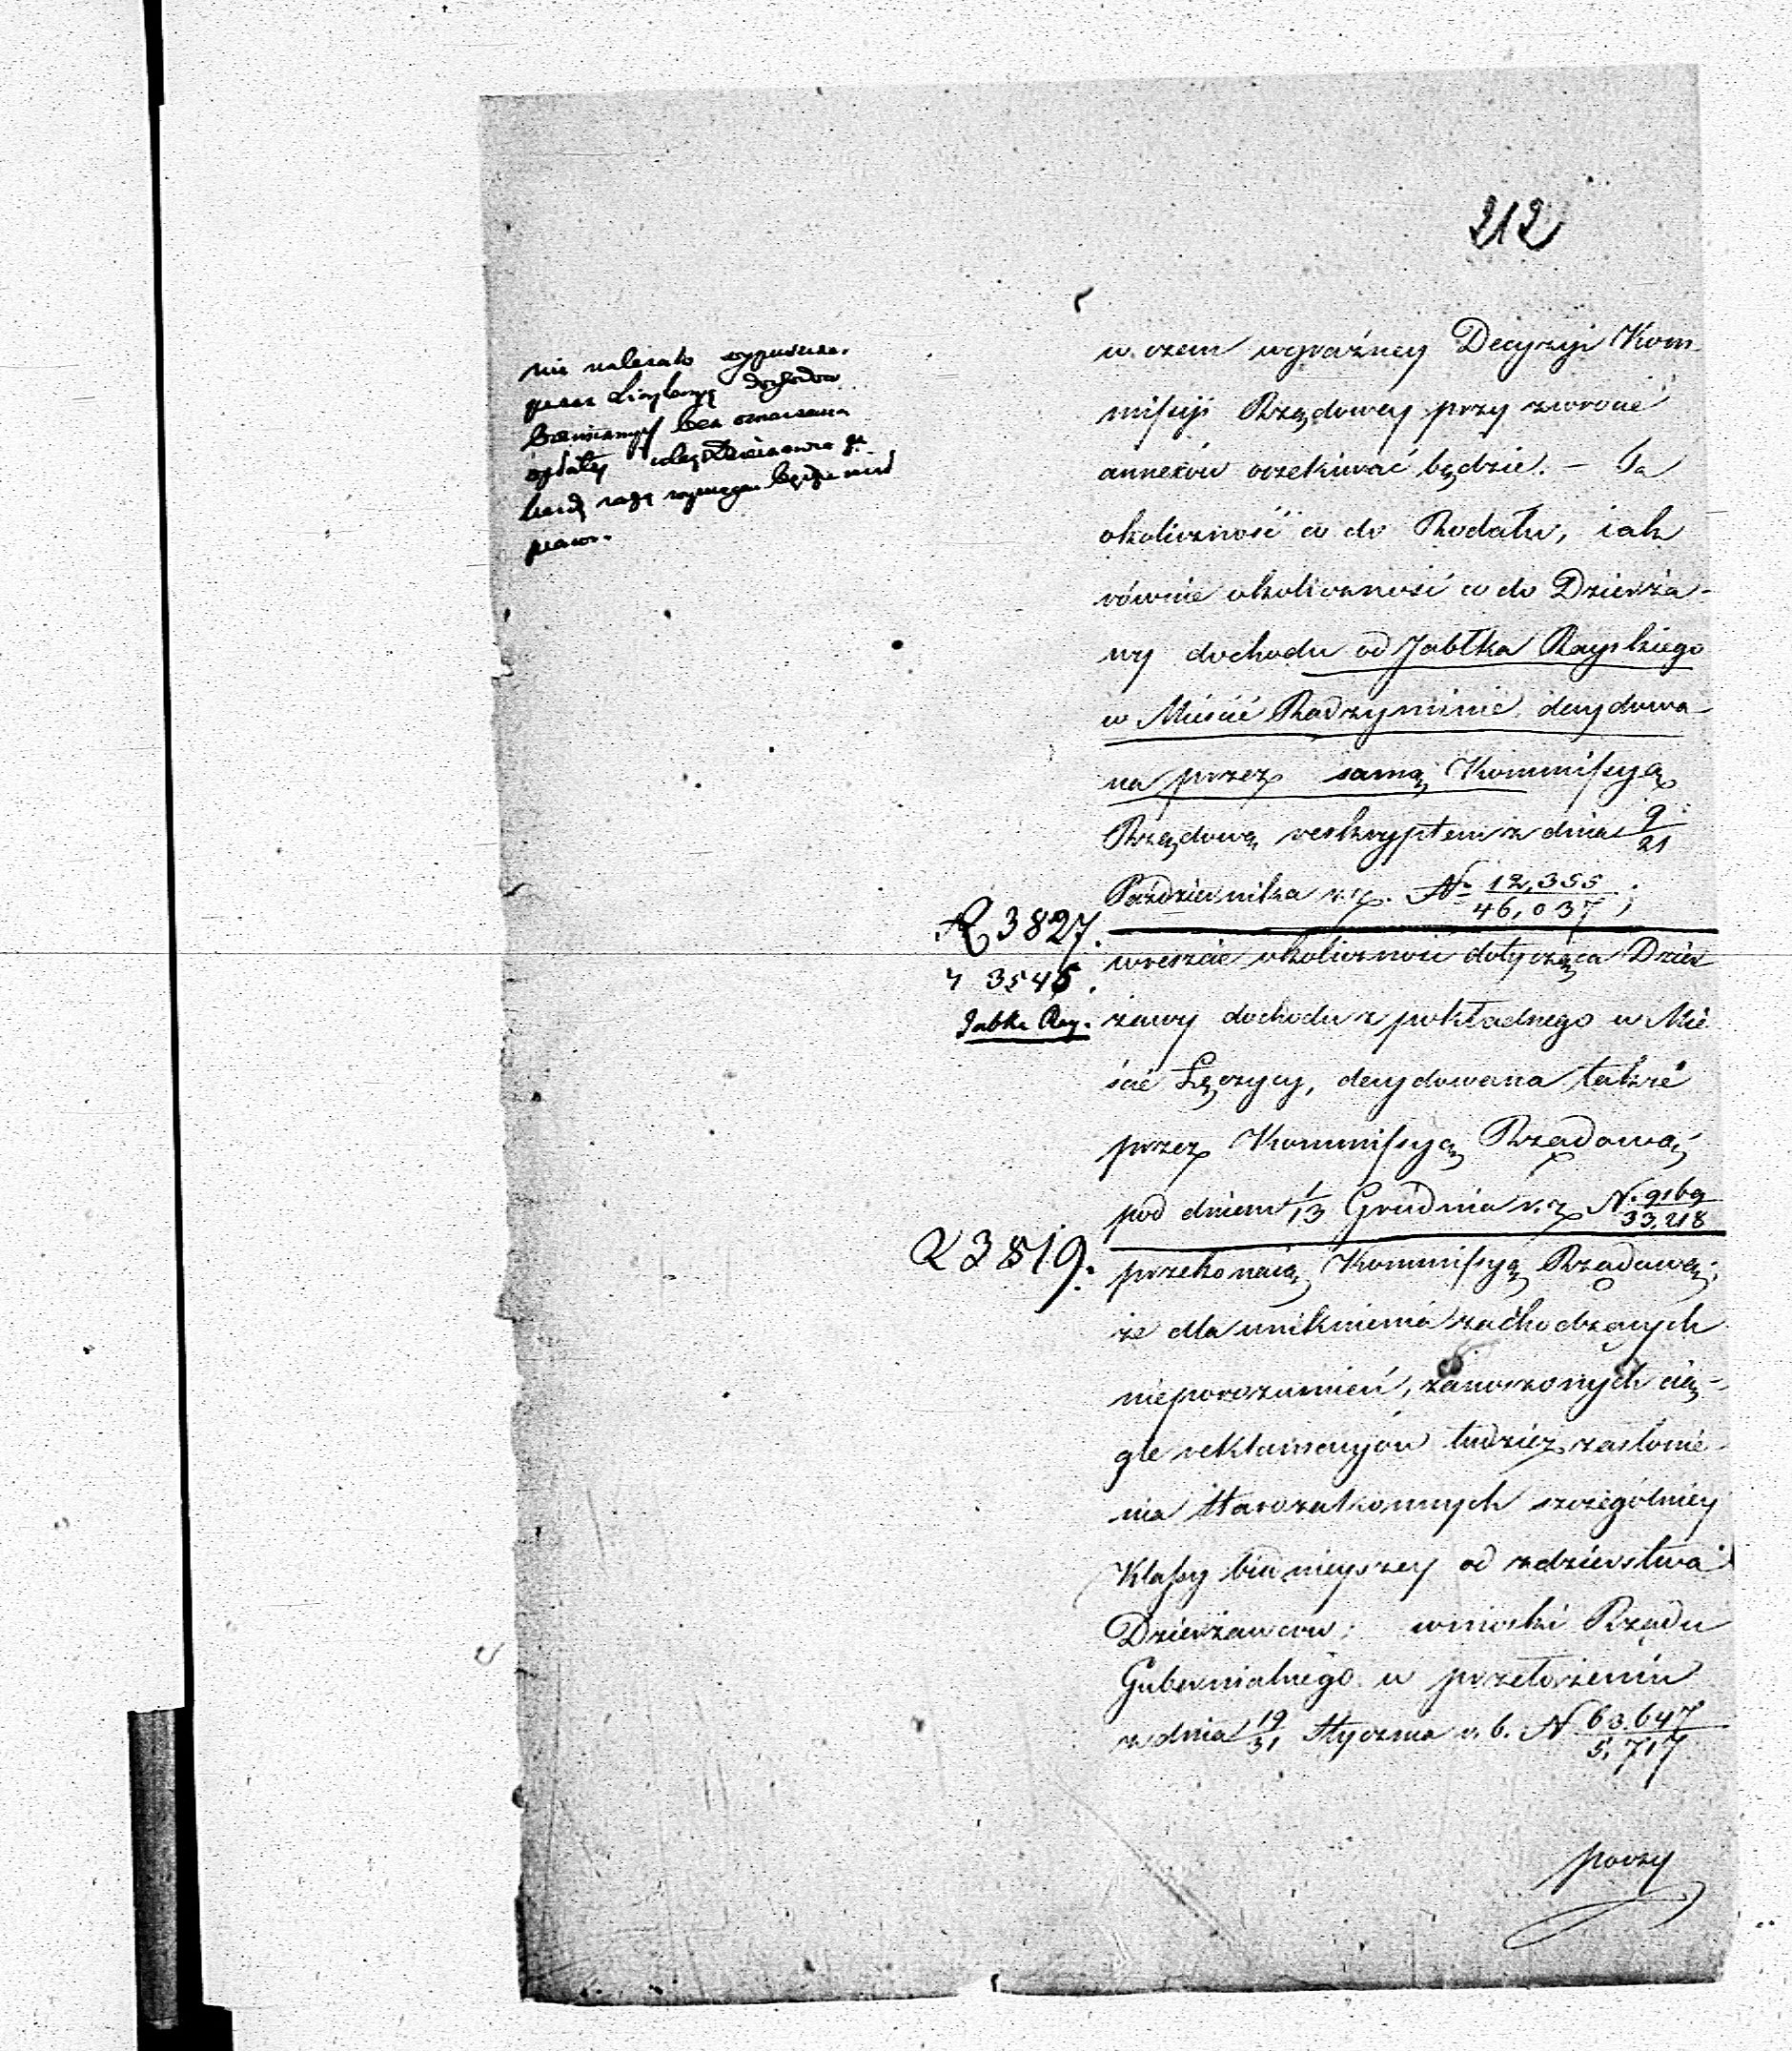 212
nie należało wypuszczać
przez Licytacyą dochodów
bez oznaczenia
opłaty
każdą razą wymagać będzie miał
prawo.
w czem wyraźney Decyzyi Kom-
missyi Rządowey przy zwrocie
annexów oczekiwać będzie. – Ta
okoliczność co do Rodału, iak
równie okoliczność co do Dzierża-
wy dochodu od Jabłka Rayskiego
w Mieście Radzyminie decydowa-
na przez samą Kommissyą
Rządową reskryptem z dnia 9/21
Października r. z. N. 12,355/46,037;
R 3827.
3545.
Jabłk. Ray.
wreszcie okoliczność dotycząca Dzier
żawy dochodu z pokładnego w Mie
ście Łęczycy, decydowana także
przez Kommissyą Rządową
pod dniem 1/13 Grudnia r. z. N. 9169/33,218
R 3819.
przekonaią Kommissyą Rządową;
że dla uniknienia zachodzących
nieporozumień, zanoszonych cią-
gle reklamacyjów tudzież zasłonie-
nia Starozakonnych szczególniey
Klassy biednieyszey od zdzierstwa
Dzierżawców; wnioski Rządu
Gubernialnego w przełożeniu
z dnia 19/31 Stycznia r. b. N 63.647/5,717
poczy